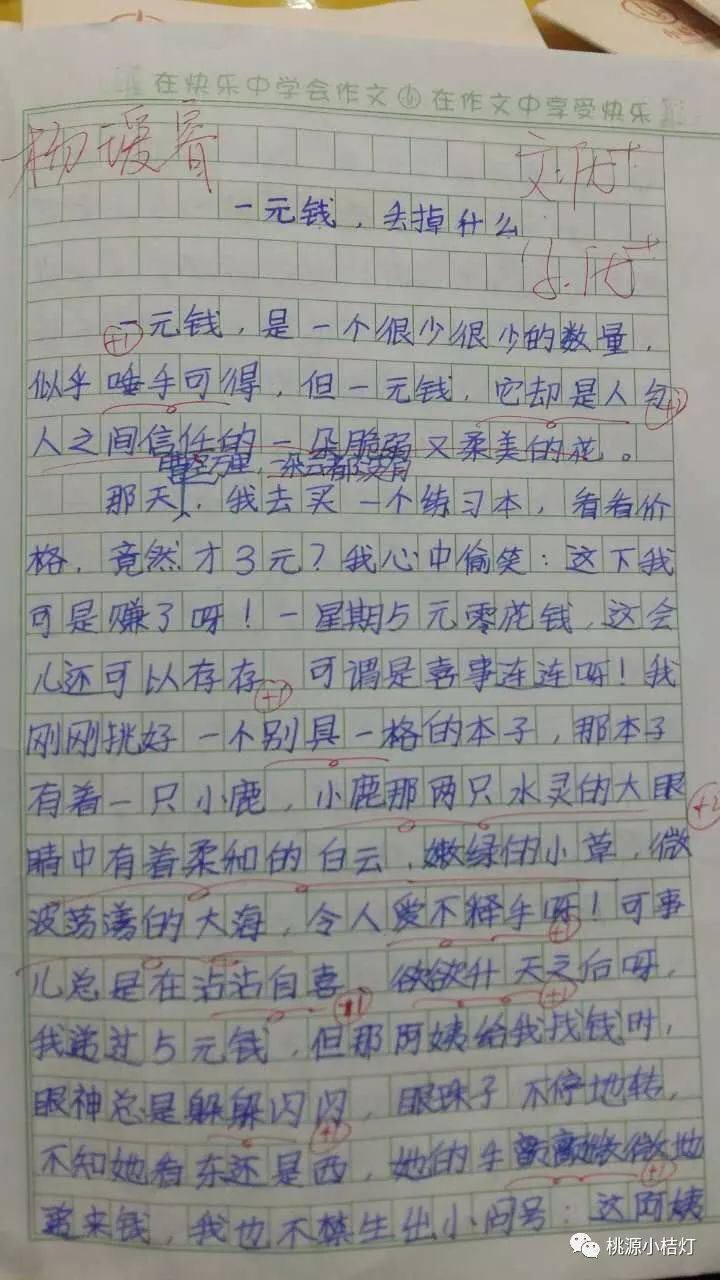 在快乐中学会作文 在作文中享受快乐
杨瑷睿
一元钱，丢掉什么
一元钱，是一个很少很少的数量，
似乎唾手可得，但一元钱，它却是人与
人之间信任的一朵脆弱又柔美的花。
万里，一朵云都没有
那天，我去买一个练习本，看看价
格，竟然才3元？我心中偷笑：这下我
可是赚了呀！一星期5元零花钱，这会
儿还可以存存，可谓是喜事连连呀！我
刚刚挑好一个别具一格的本子，那本子
有着一只小鹿，小鹿那两只水灵的大眼
睛中有着柔和的白云，嫩绿的小草，微
波荡漾的大海，令人爱不释手呀！可事
儿总是在沾沾自喜、欲欲升天之后呀，
我递过5元钱，但那阿姨给我找钱时，
眼神总是躲躲闪闪，眼珠子不停地转，
不知她看东还是西，她的手微微地
递来钱，我也不禁生出小问号：这阿姨
+1
+1
+1
+1
+1
+1
+1
桃源小桔灯